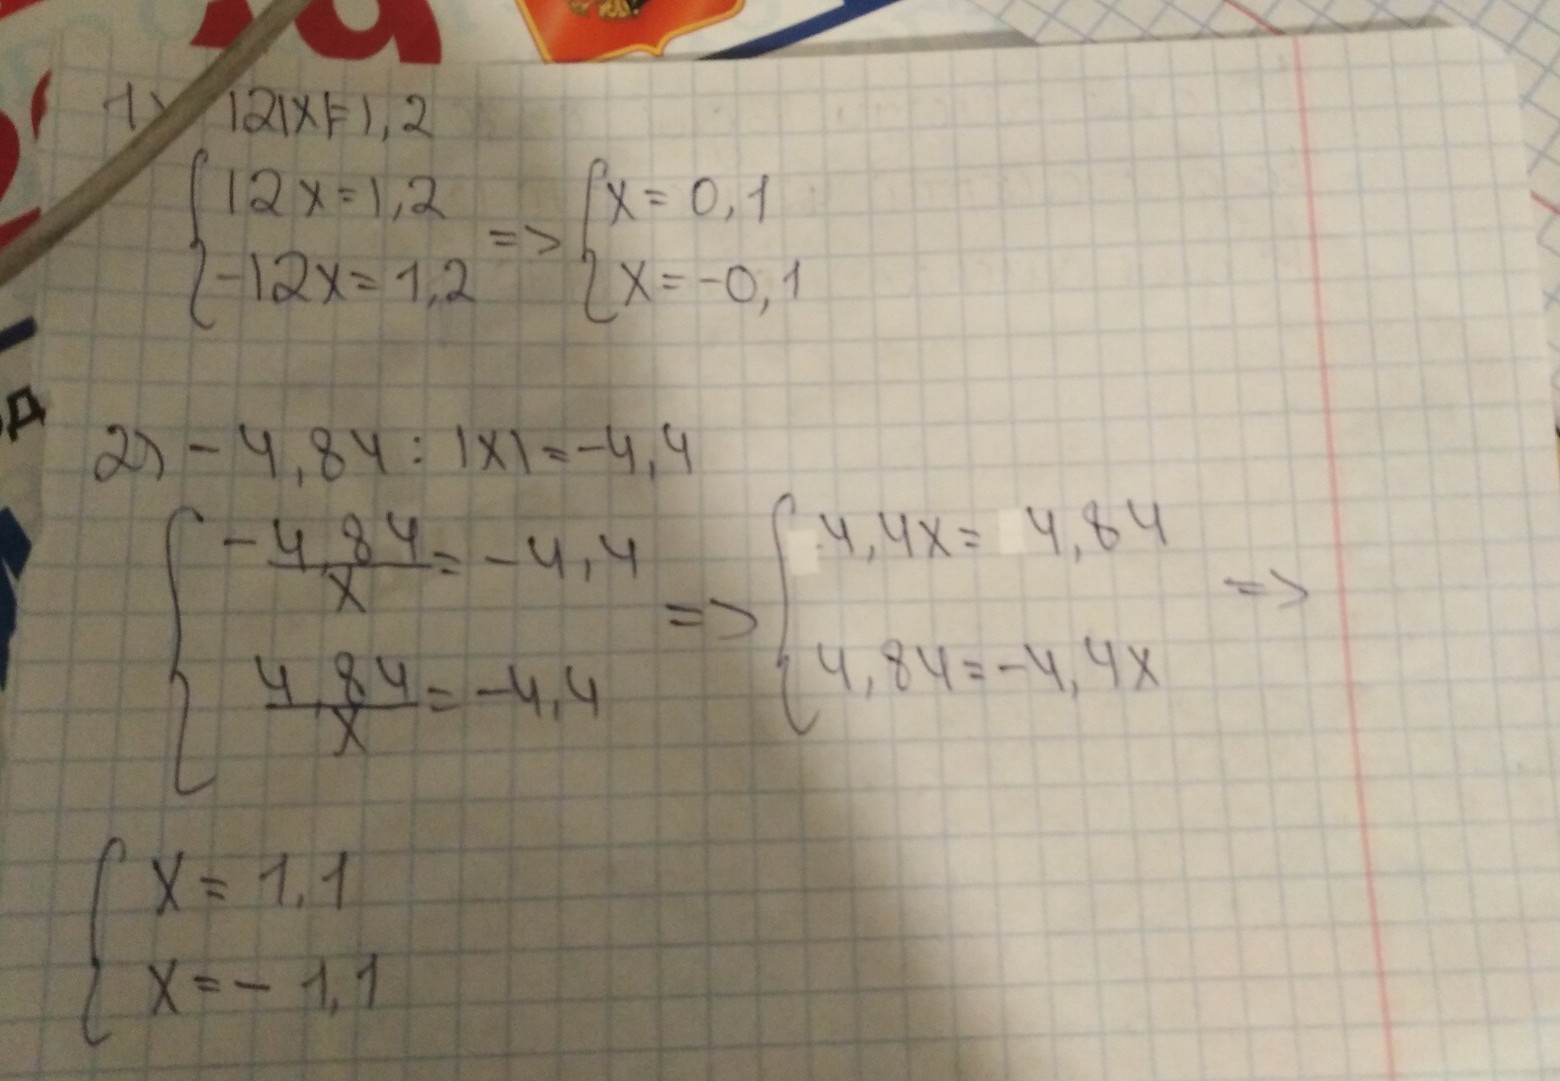 1) 12|x|=1,2
{ 12x=1,2 => { x=0,1
-12x=1,2 x=-0,1
2) -4,84 : |x|=-4,4
{ -4,84/x = -4,4 => { 4,4x= 4,84 =>
4,84/x = -4,4 4,84=-4,4x
{ x= 1,1
x=- 1,1